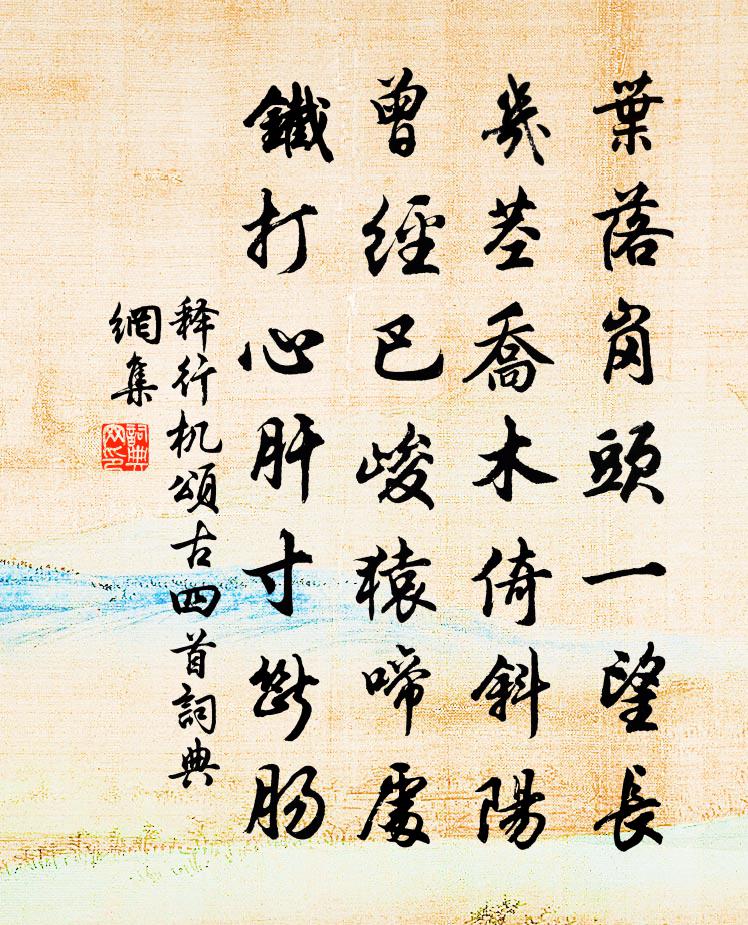 葉落岗頭一望長
幾茎喬木倚斜陽
曾經巴峻猿啼處
鐵打心肝寸斷肠
释行机頌古四首詞典
網集
詞典
網印